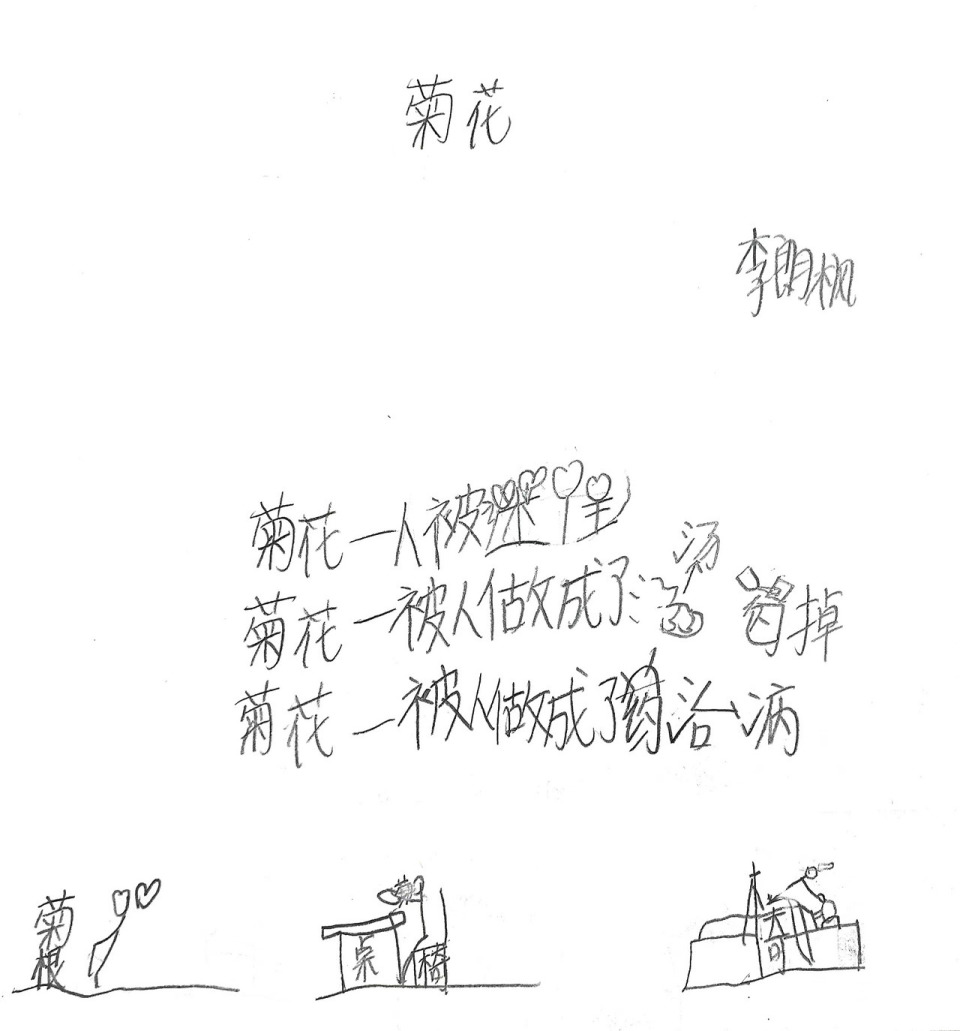 菊花
李朗枫
菊花一人被迷
汤
菊花一被人做成了汤 掉
菊花一被人做成了药治病
菊
根
菊
桌 椅